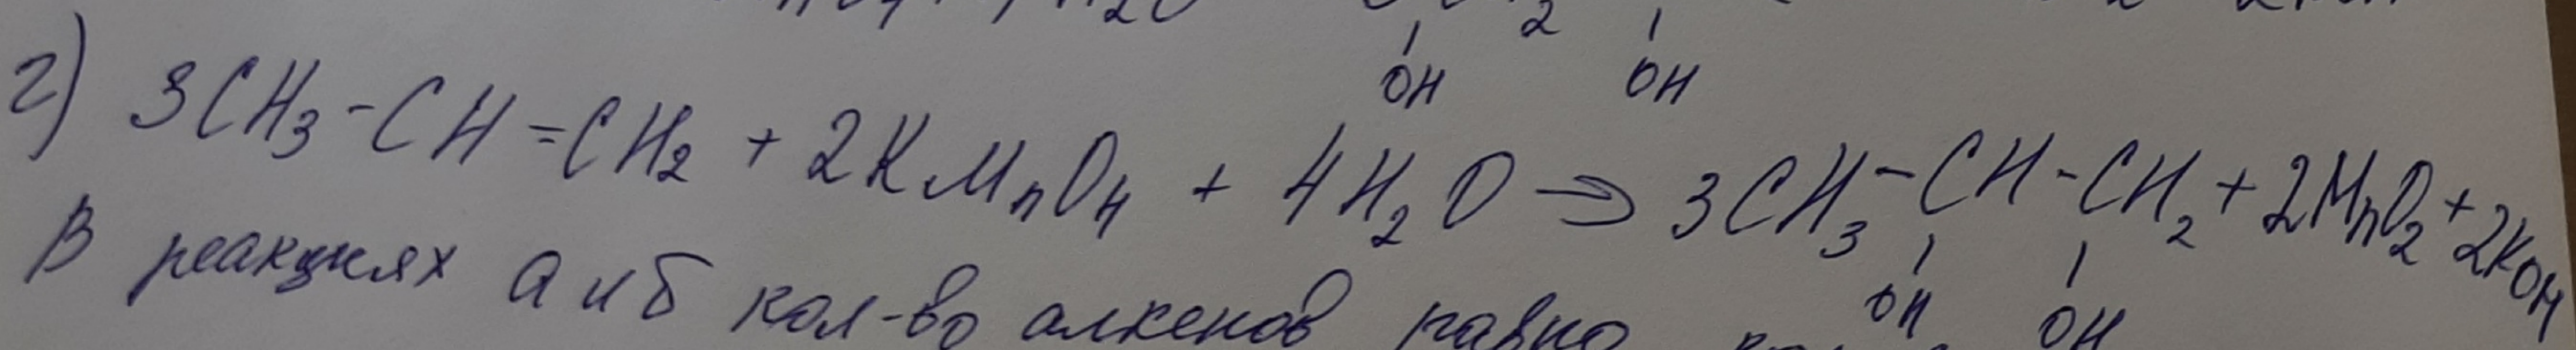 OH OH
г) 3CH₃-CH=CH₂ + 2KMnO₄ + 4H₂O → 3CH₃-CH-CH₂ + 2MnO₂ + 2KOH
OH OH
В реакциях а и б кол-во алкенов равно